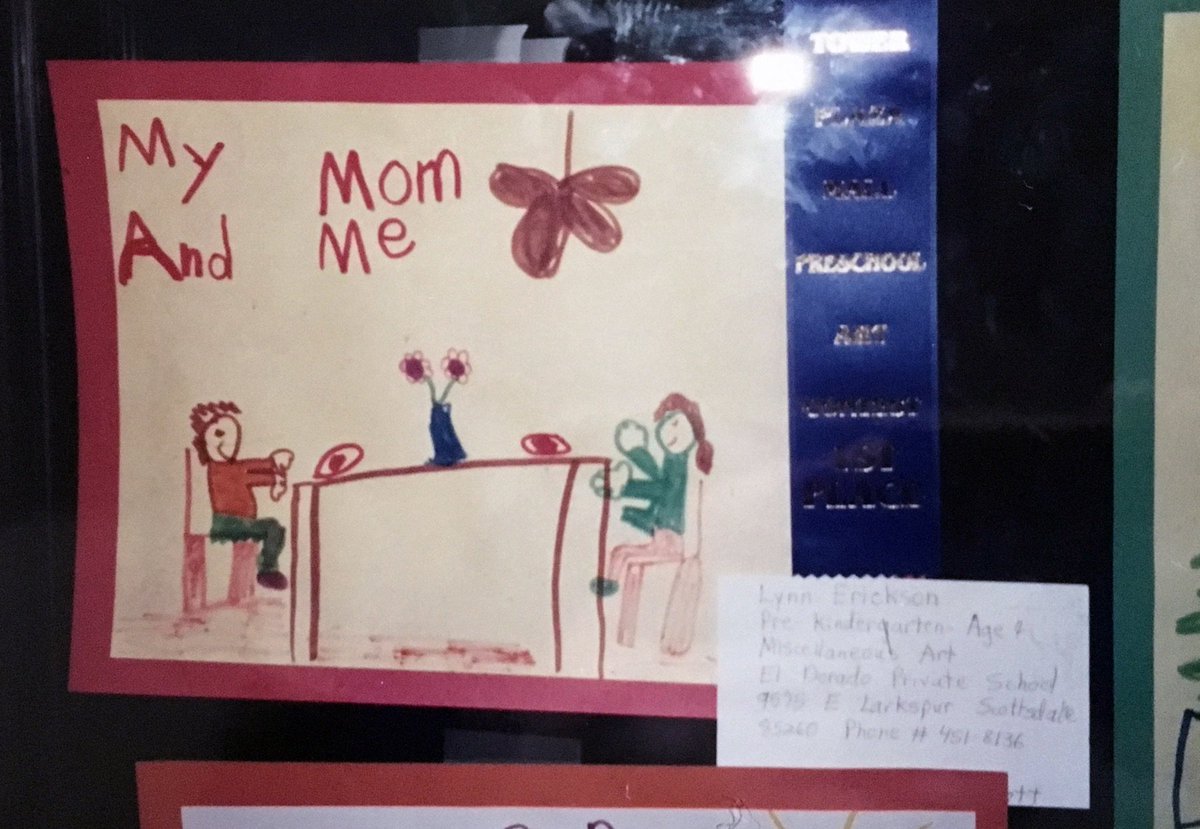 My Mom
And Me
TOWER
PLAZA
MALL
PRESCHOOL
ART
CONTEST
1ST
PLACE
Lynn Erickson
Pre-Kindergarten- Age 4
Miscellaneous Art
El Dorado Private School
9595 E Larkspur Scottsdale
85260 Phone # 451 8136